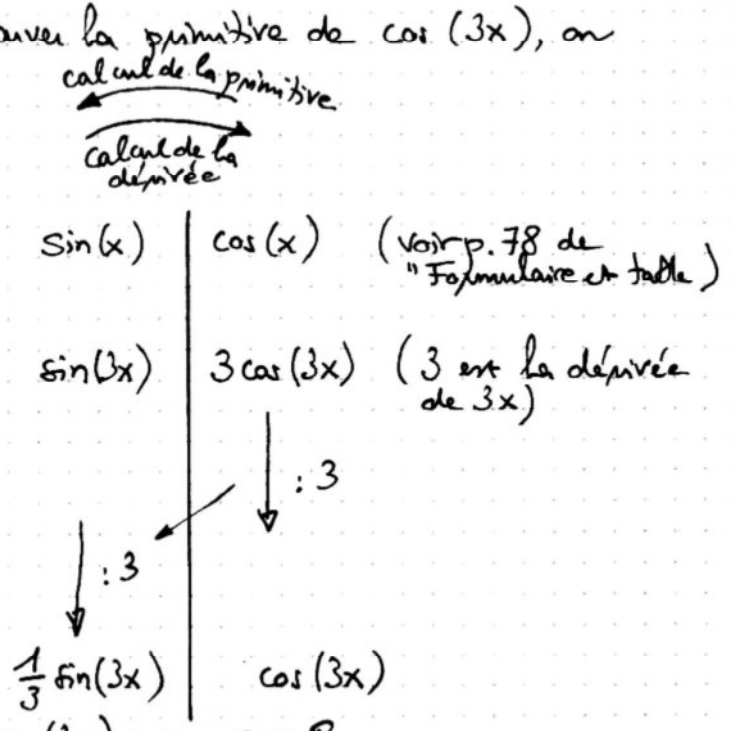 la primitive de cos (3x), on
calcul de la primitive
calcul de la
dérivée
sin(x) cos(x) (voir p. 78 de
"Formulaire et table)
sin(3x) 3 cos(3x) (3 est la dérivée
de 3x)
: 3
: 3
1/3 sin(3x) cos(3x)